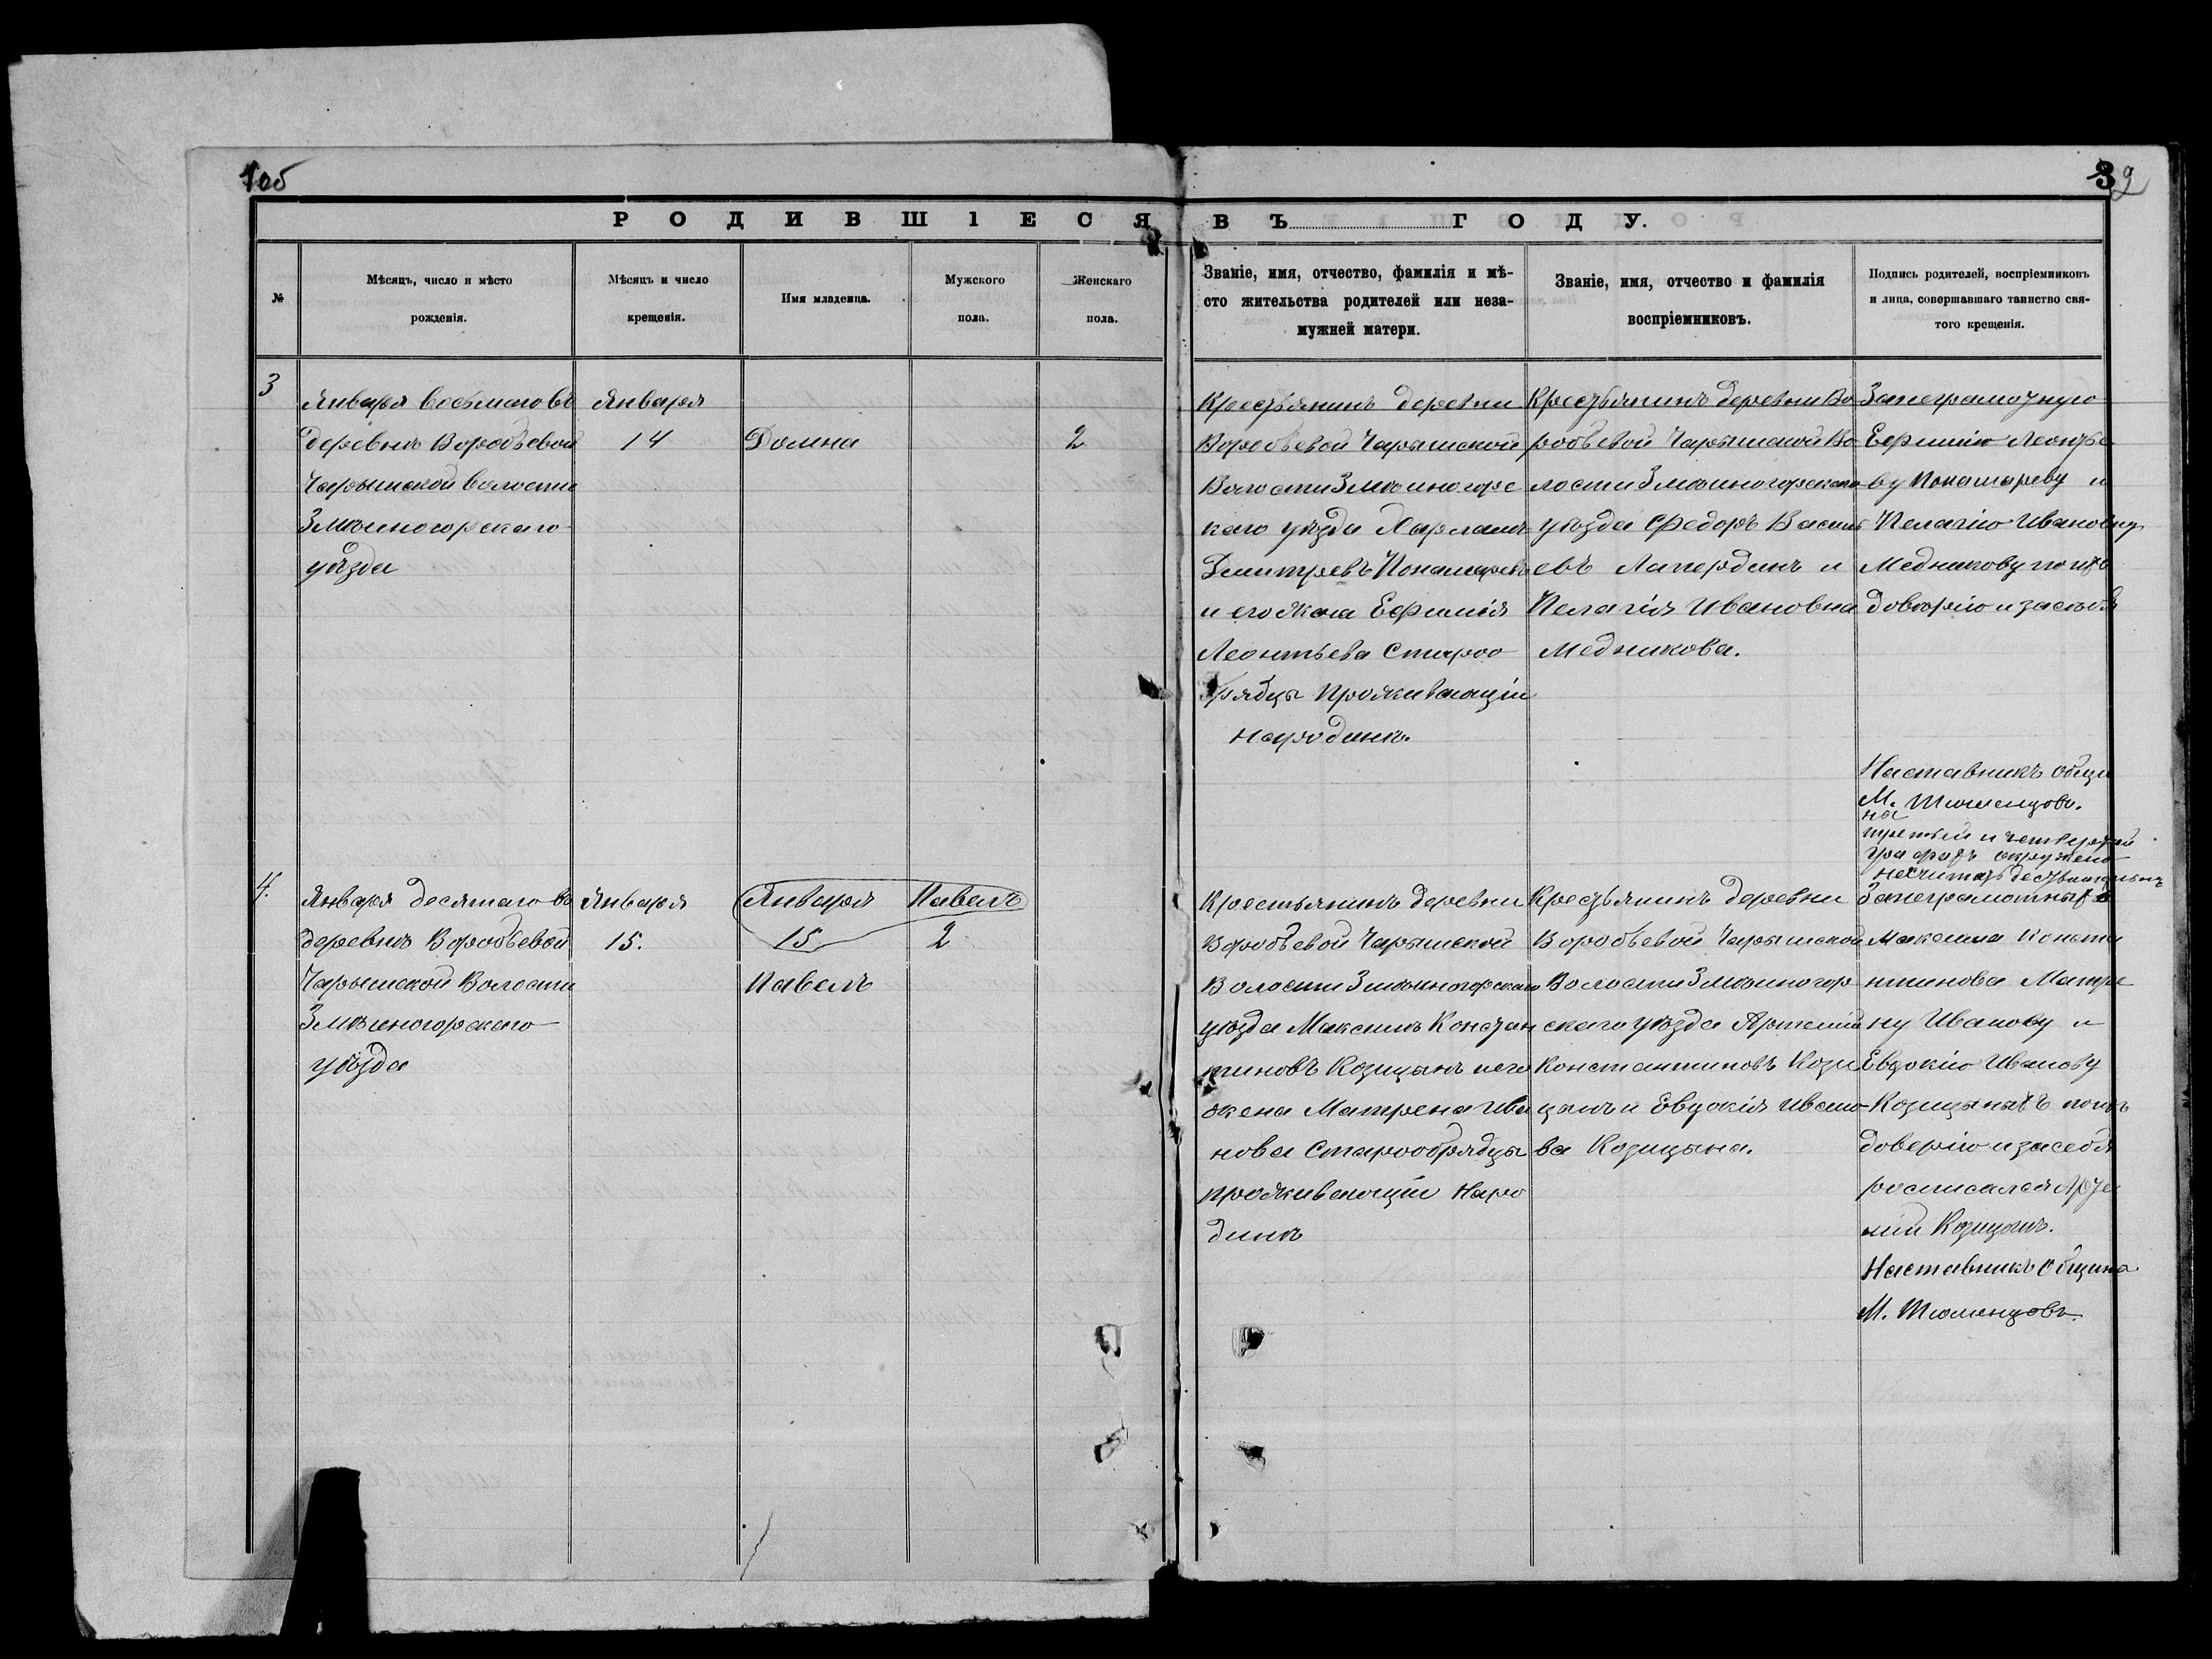 105
32
РОДИВШІЕСЯ ВЪ ГОДУ.
№
Мѣсяцъ, число и мѣсто
рожденія.
Мѣсяцъ и число
крещенія.
Имя младенца.
Мужского
пола.
Женскаго
пола.
Званіе, имя, отчество, фамилія и мѣ-
сто жительства родителей или неза-
мужней матери.
Званіе, имя, отчество и фамилія
воспріемниковъ.
Подпись родителей, воспріемниковъ
и лица, совершавшаго таинство свя-
того крещенія.
3
Января восьмаго въ
деревнѣ Воробьевой
Чарышской волости
Змѣиногорскаго
уѣзда
Января
14
Домна
2
Крестьянинъ деревни
Воробьевой Чарышской
Волости Змѣиногорс
каго уѣзда Харламъ
Дмитревъ Понамаревъ
и его Жена Ефимія
Леонтьева Староо
брядцы Проживающіи
народинѣ.
Крестьянинъ деревни Во
робьевой Чарышской Во
лости Змѣиногорскаго
уѣзда Федоръ Васил
евъ Лапердинъ и
Пелагія Ивановна
Медникова.
Занеграмотную
Ефимію Леонтье
ву Понамареву и
Пелагію Ивановну
Медникову по ихъ
довѣрію и засебѣ
Наставникъ общи
М. Тюменцовъ.
ны
третьей и четвертой
графахъ окружено
несчитать действительнъ
4.
Января десятаго въ
деревнѣ Воробьевой
Чарышской Волости
Змѣиногорскаго
уѣзда
Января
15.
Января
15
Павелъ
Павелъ
2
Крестьянинъ деревни
Воробьевой Чарышской
Волости Змѣиногорскаго
уѣзда Максимъ Констан
тиновъ Козицынъ и его
жена Матрена Ива
нова Старообрядцы
проживающіи Наро
динѣ
Крестьянинъ деревни
Воробьевой Чарышской
Волости Змѣиногор
скаго уѣзда Артемій
Константиновъ Кози
цынъ и Евдокія Ивано
ва Козицына.
Занеграмотныхъ
Максима Конста
нтинова Матре
ну Иванову и
Евдокію Иванову
Козицыныхъ по ихъ
доверію и засебя
росписался Арте
мій Козицынъ.
Наставникъ Община
М. Тюменцовъ.